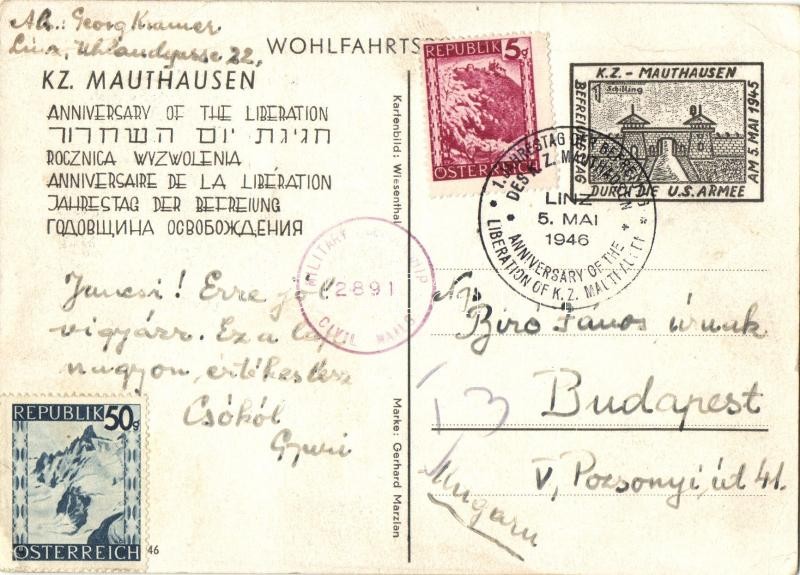 Ab.: Georg Kramer
Linz, Uhlandgasse 22,
WOHLFAHRTS
KZ. MAUTHAUSEN
ANNIVERSARY OF THE LIBERATION
חגיגת יום השחרור
ROCZNICA WYZWOLENIA
ANNIVERSAIRE DE LA LIBÉRATION
JAHRESTAG DER BEFREIUNG
ГОДОВЩИНА ОСВОБОЖДЕНИЯ
Jancsi! Erre jól
vigyázz. Ez a lap
nagyon értékes lesz
Csókol
Gyuri
REPUBLIK 50g
ÖSTERREICH
46
Kartenbild: Wiesenthal
Marke: Gerhard Marzian
MILITARY
2891
CIVIL MAILS
REPUBLIK 5g
ÖSTERREICH
K.Z. - MAUTHAUSEN
1 Schilling
BEFREIUNGSTAG
AM 5. MAI 1945
DURCH DIE U.S. ARMEE
1. JAHRESTAG DER BEFREIUNG
DES K.Z. MAUTHAUSEN
LINZ
5. MAI
1946
ANNIVERSARY OF THE
LIBERATION OF K.Z.
Biró János úrnak
Budapest
V, Pozsonyi út 41.
Ungarn